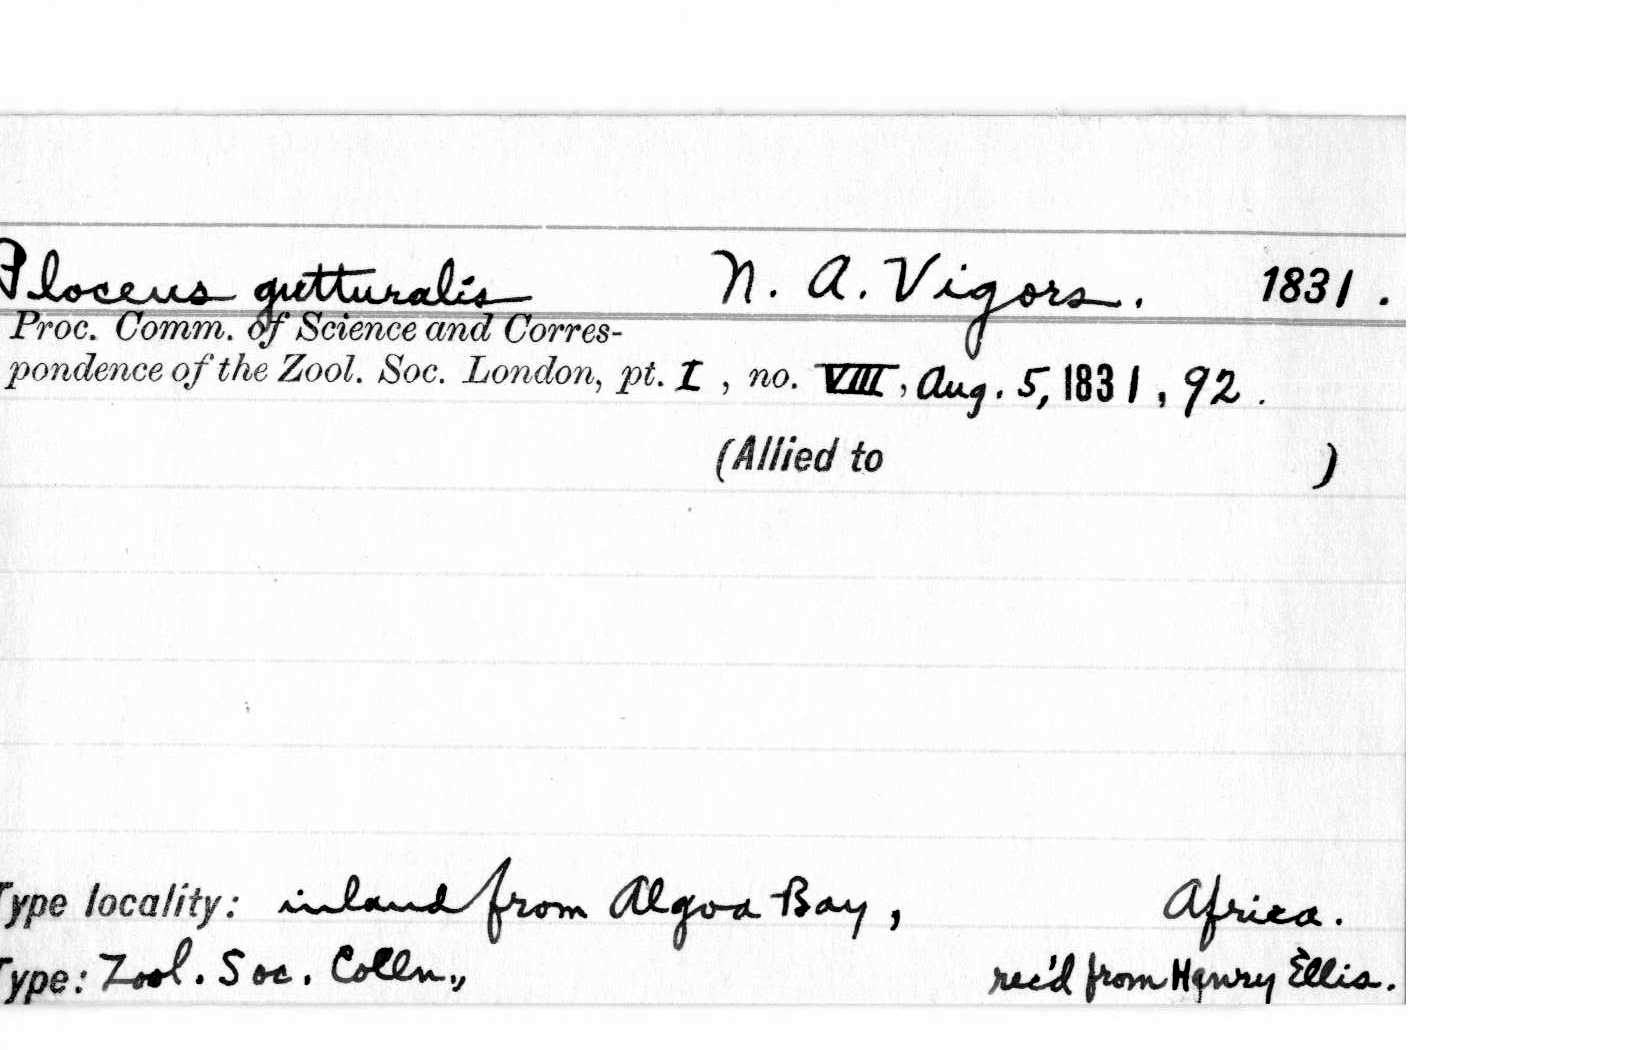 Ploceus gutturalis N. A. Vigors. 1831.
Proc. Comm. of Science and Corres-
pondence of the Zool. Soc. London, pt. I, no. VIII, Aug. 5, 1831, 92.
(Allied to )
Type locality: inland from Algoa Bay, Africa.
Type: Zool. Soc. Colln., rec'd from Henry Ellis.